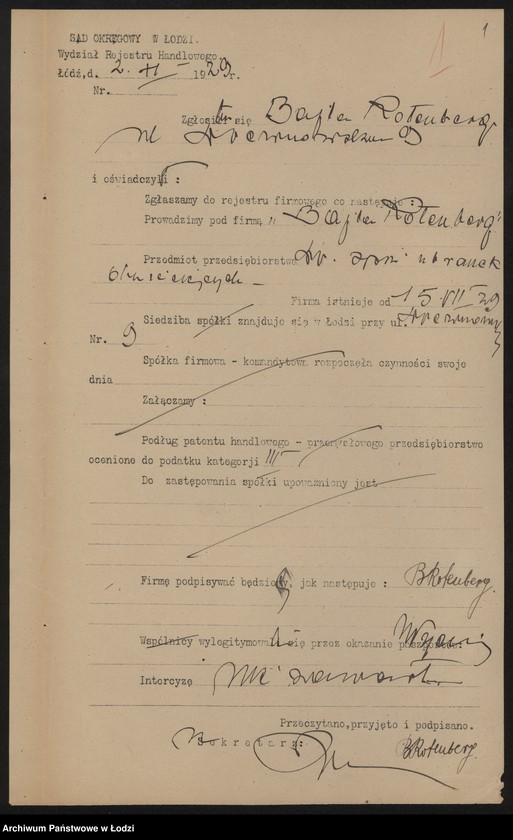 1
SĄD OKRĘGOWY W ŁODZI.
Wydział Rejestru Handlowego.
Łódź, d. 2. XI 1929r.
Nr.
Zgłosił się Bajla Rotenberg
i oświadczył :
Zgłaszamy do rejestru firmowego co następuje :
Prowadzimy pod firmą "Bajla Rotenberg"
Przedmiot przedsiębiorstwa
Firma istnieje od 15 VII 29
Siedziba spółki znajduje się w Łodzi przy ul.
Nr. 9
Spółka firmowa - komandytowa rozpoczęła czynności swoje
dnia
Załączamy :
Podług patentu handlowego - przemysłowego przedsiębiorstwo
ocenione do podatku kategorji III
Do zastępowania spółki upoważniony jest
Firmę podpisywać będzie, jak następuje : BRotenberg.
Wspólnicy wylegitymowali się przez okazanie
Intercyzę nie zawarła
Przeczytano, przyjęto i podpisano.
Sekretarz: BRotenberg.
Archiwum Państwowe w Łodzi